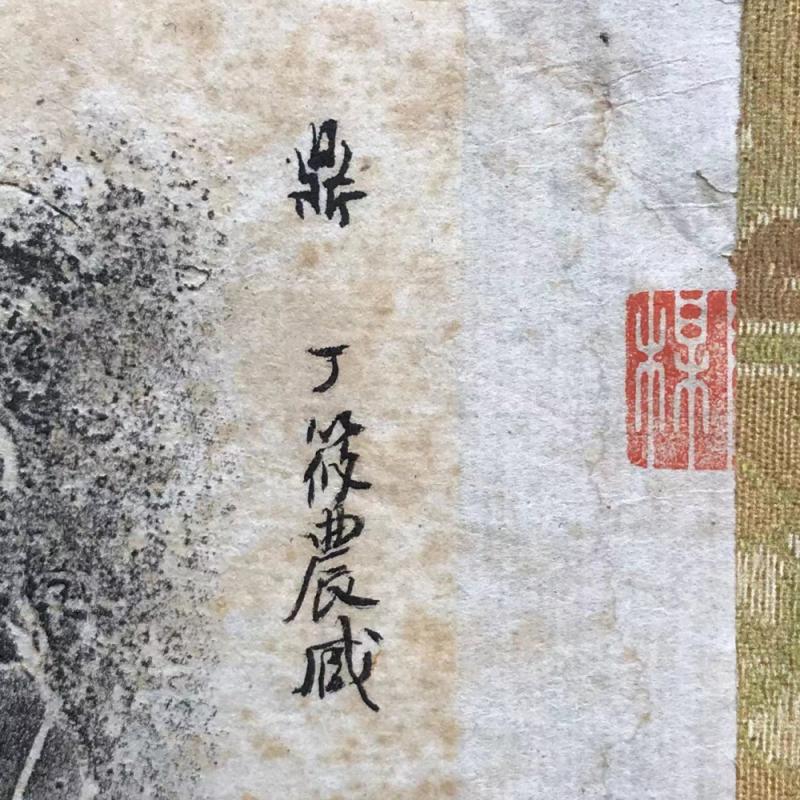 鼎
丁筱農臧